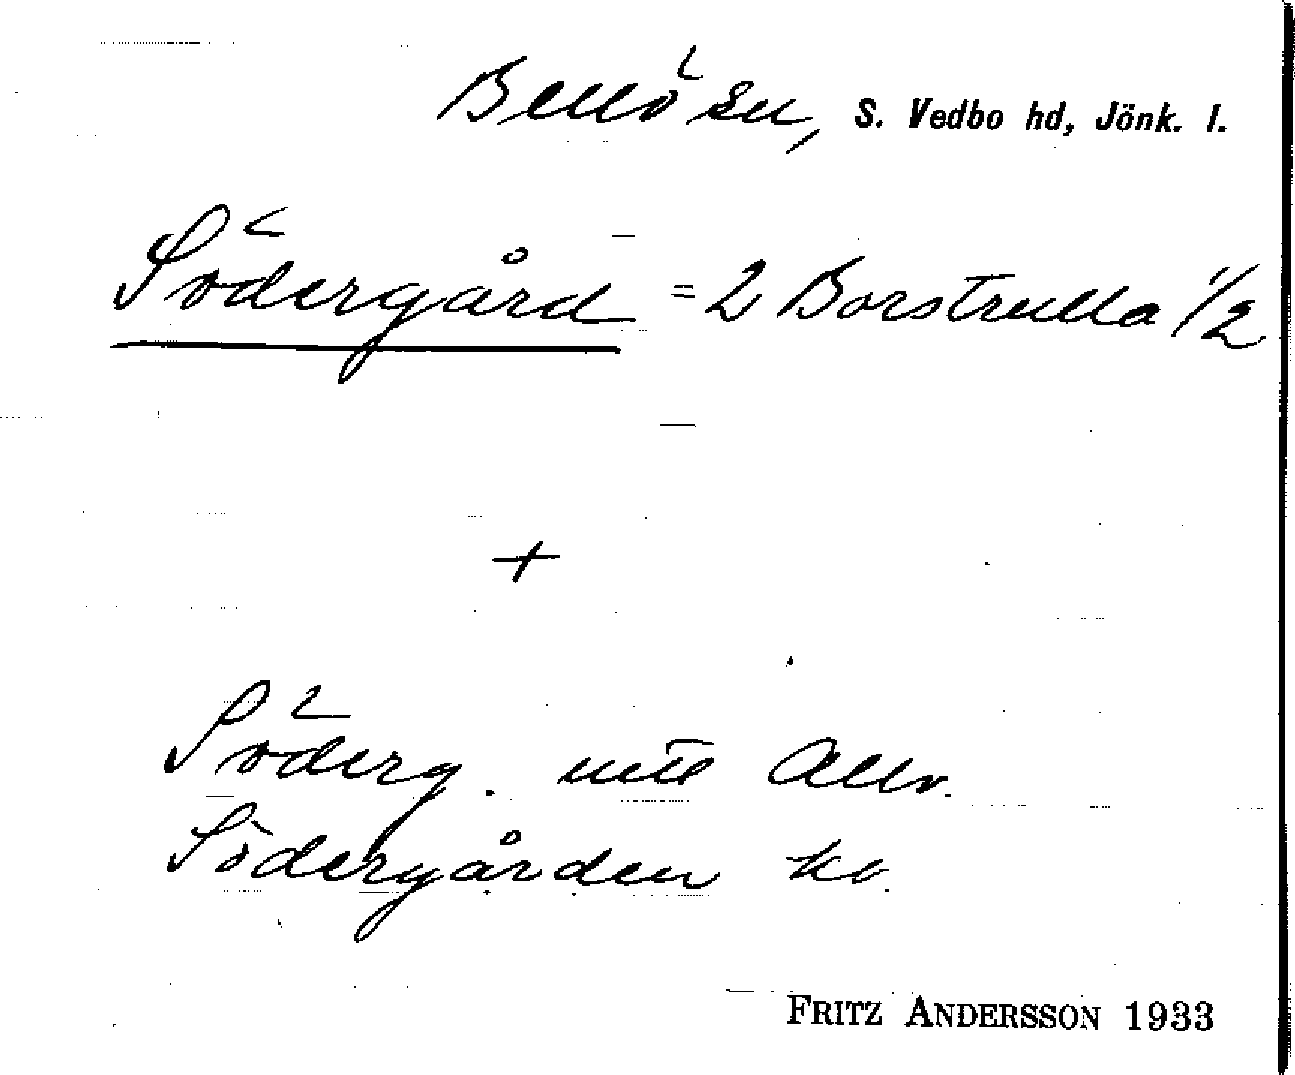 Bellö sn, S. Vedbo hd, Jönk. l.
Södergård = 2 Borstrulla 1/2
+
Söderg. utt Allm.
Södergården ko.
FRITZ ANDERSSON 1933